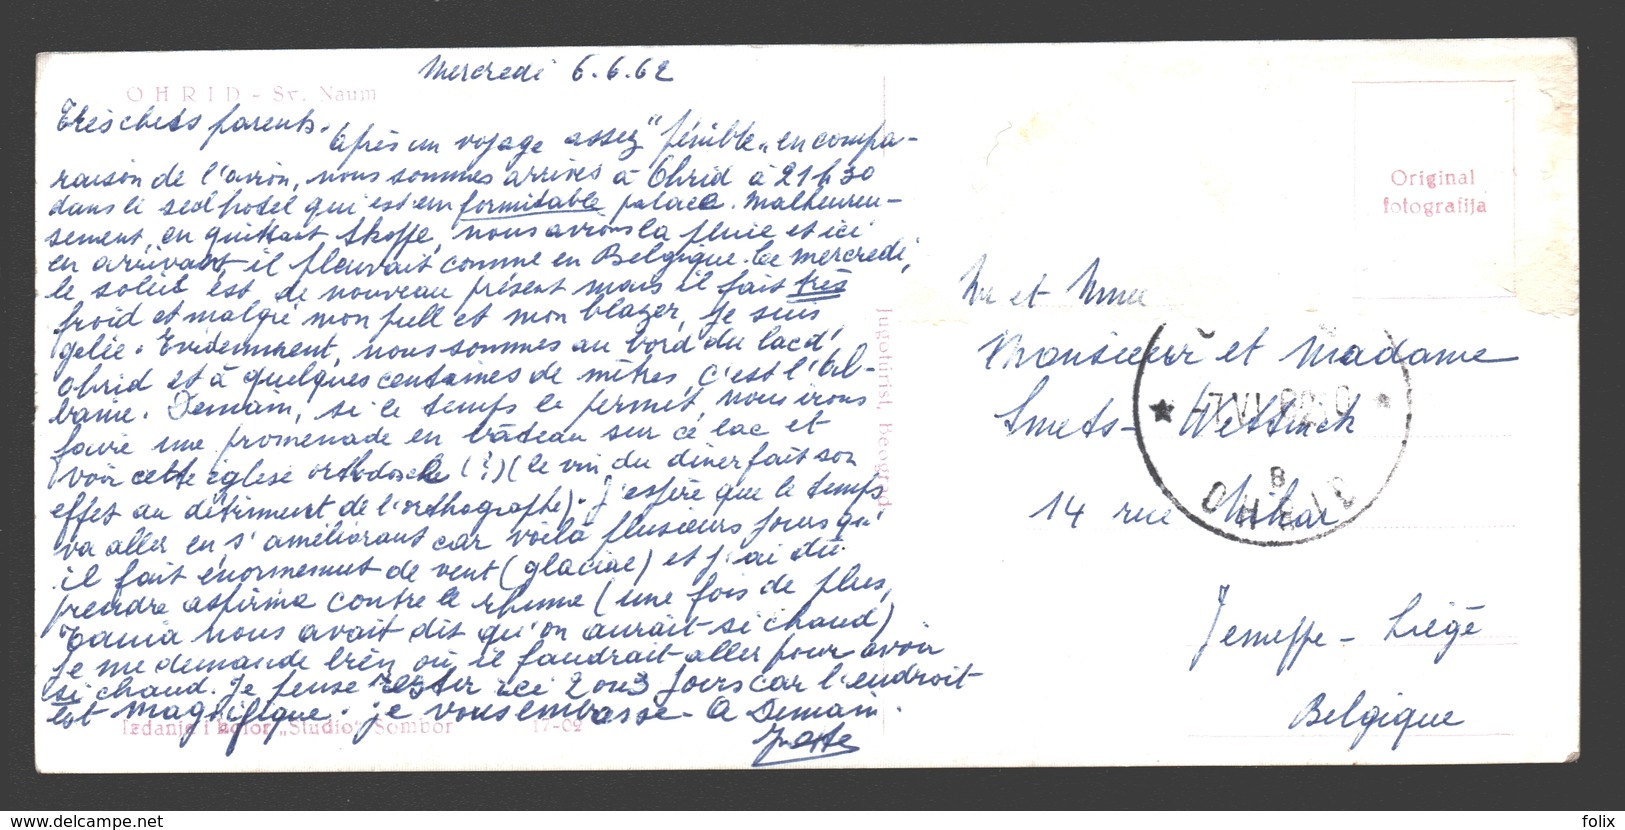 Mercredi 6.6.62
OHRID - Sv. Naum
Très chers parents.
Après un voyage assez "pénible" en compa-
raison de l'avion, nous sommes arrivés à Ohrid à 21h30
dans le seul hotel qui est un formidable palace. Malheureu-
sement, en quittant Skopje, nous avions la pluie et ici
en arrivant, il pleuvait comme en Belgique. Ce mercredi,
le soleil est de nouveau présent mais il fait très
froid et malgré mon pull et mon blazer, je suis
gelée. Evidemment, nous sommes au bord du lac d'
Ohrid et à quelques centaines de mètres, c'est l'Al-
banie. Demain, si le temps le permet, nous irons
faire une promenade en bâteau sur ce lac et
voir cette église orthodoxe (?) (le vin du diner fait son
effet au détriment de l'orthographe). J'espère que le temps
va aller en s'améliorant car voilà plusieurs jours qu'
il fait énormément de vent (glacial) et j'ai dû
prendre aspirine contre le rhume (une fois de plus,
Tania nous avait dit qu'on aurait si chaud)
Je me demande bien où il faudrait aller pour avoir
si chaud. Je pense rester ici 2 ou 3 jours car l'endroit
est magnifique. Je vous embrasse. A Demain.
Izdanje i kolor „Studio" Sombor 17-02
Jugoturist, Beograd
Original
fotografija
Mr et Mme
Monsieur et Madame
Smets - Wettinck
14 rue
Jemeppe - Liége
Belgique
OHRID
B
www.delcampe.net
folix